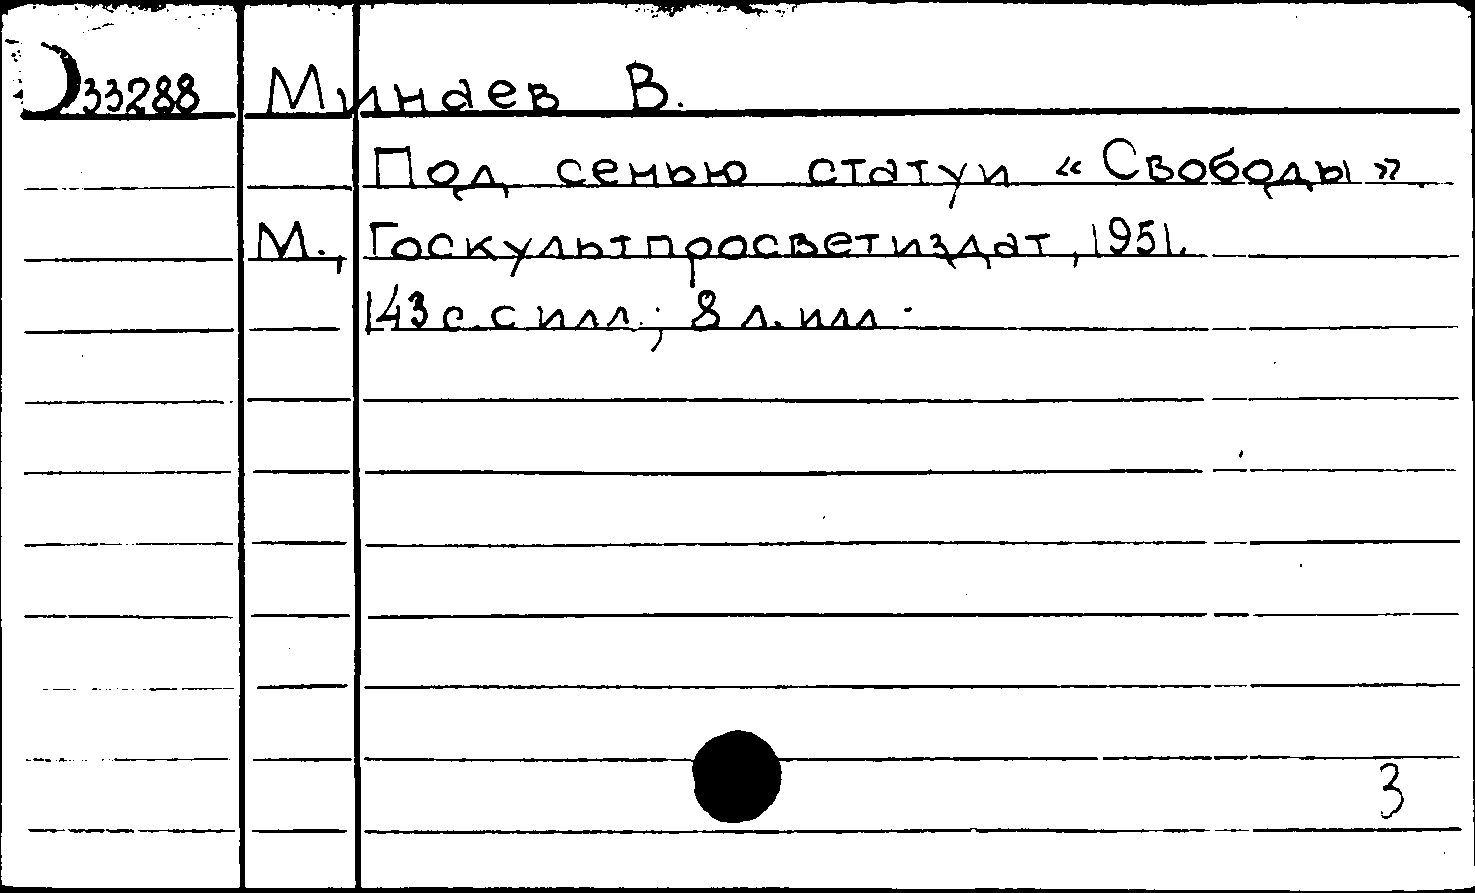 33288 Минаев В.
Под сенью статуи «Свободы».
М., Госкультпросветиздат, 1951.
143 с. с илл.; 8 л. илл.
3